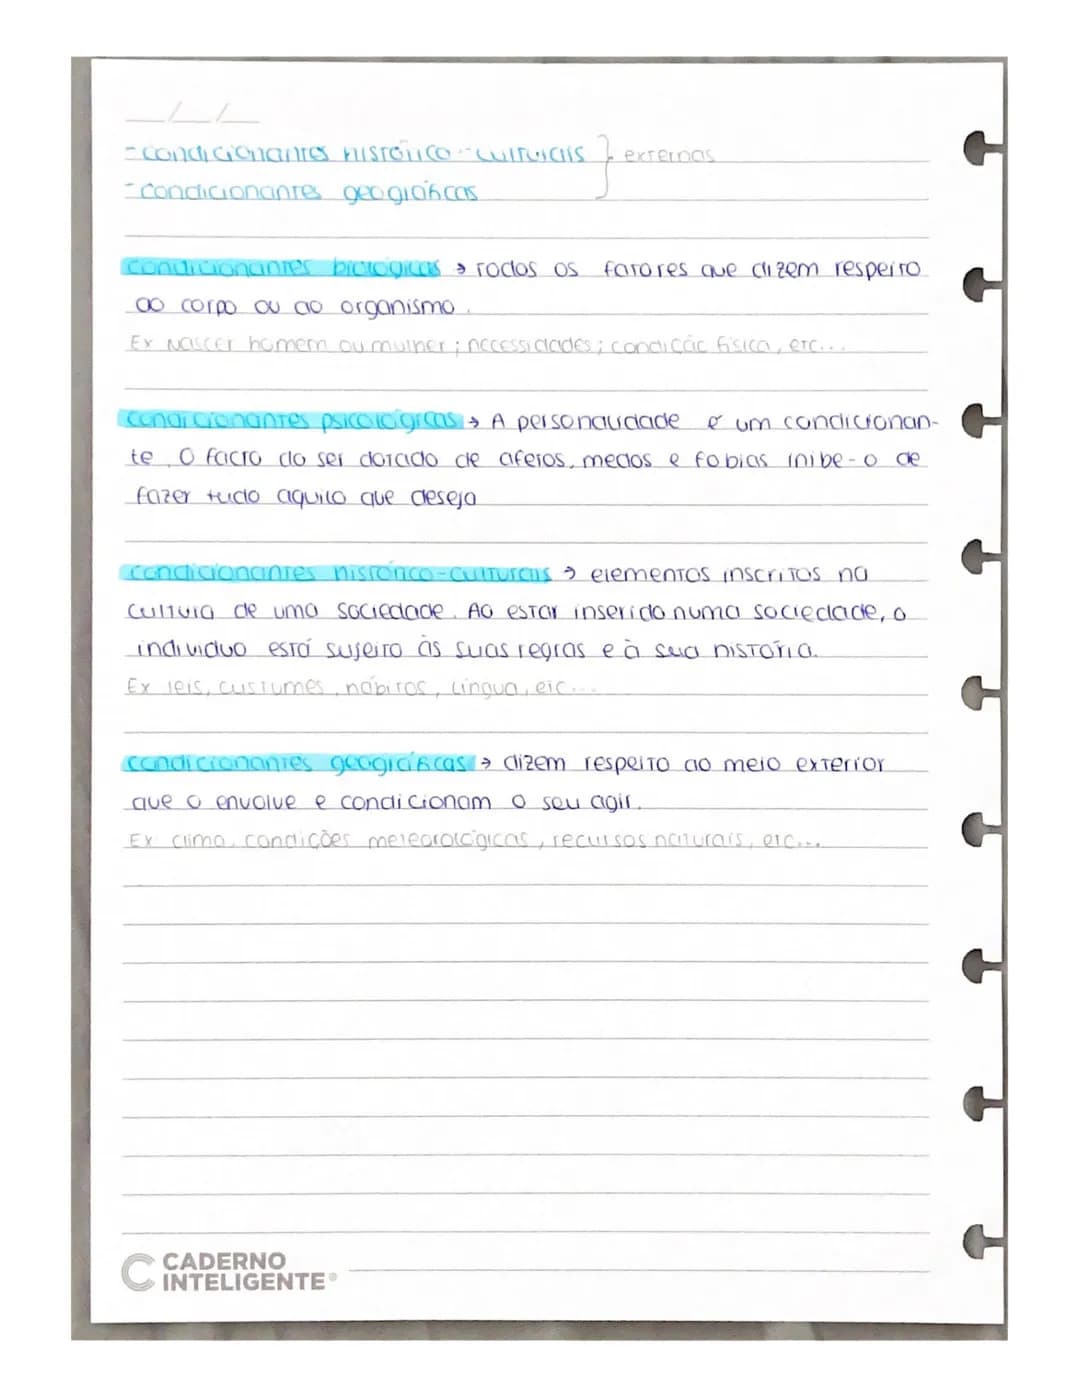 __/__/__
- condicionantes histórico-culturais } externas
- condicionantes geográficas
condicionantes biológicas → Todos os fatores que dizem respeito
ao corpo ou ao organismo.
Ex Nascer homem ou mulher; necessidades; condição física, etc...
condicionantes psicológicas → A personalidade é um condicionan-
te. O facto do ser dotado de afetos, medos e fobias inibe-o de
fazer tudo aquilo que deseja
condicionantes histórico-culturais → elementos inscritos na
cultura de uma sociedade. Ao estar inserido numa sociedade, o
individuo está sujeito às suas regras e à sua história.
Ex leis, custumes, hábitos, língua, etc...
condicionantes geográficas → dizem respeito ao meio exterior
que o envolve e condicionam o seu agir.
Ex clima, condições meteorológicas, recursos naturais, etc...
CADERNO
INTELIGENTE®